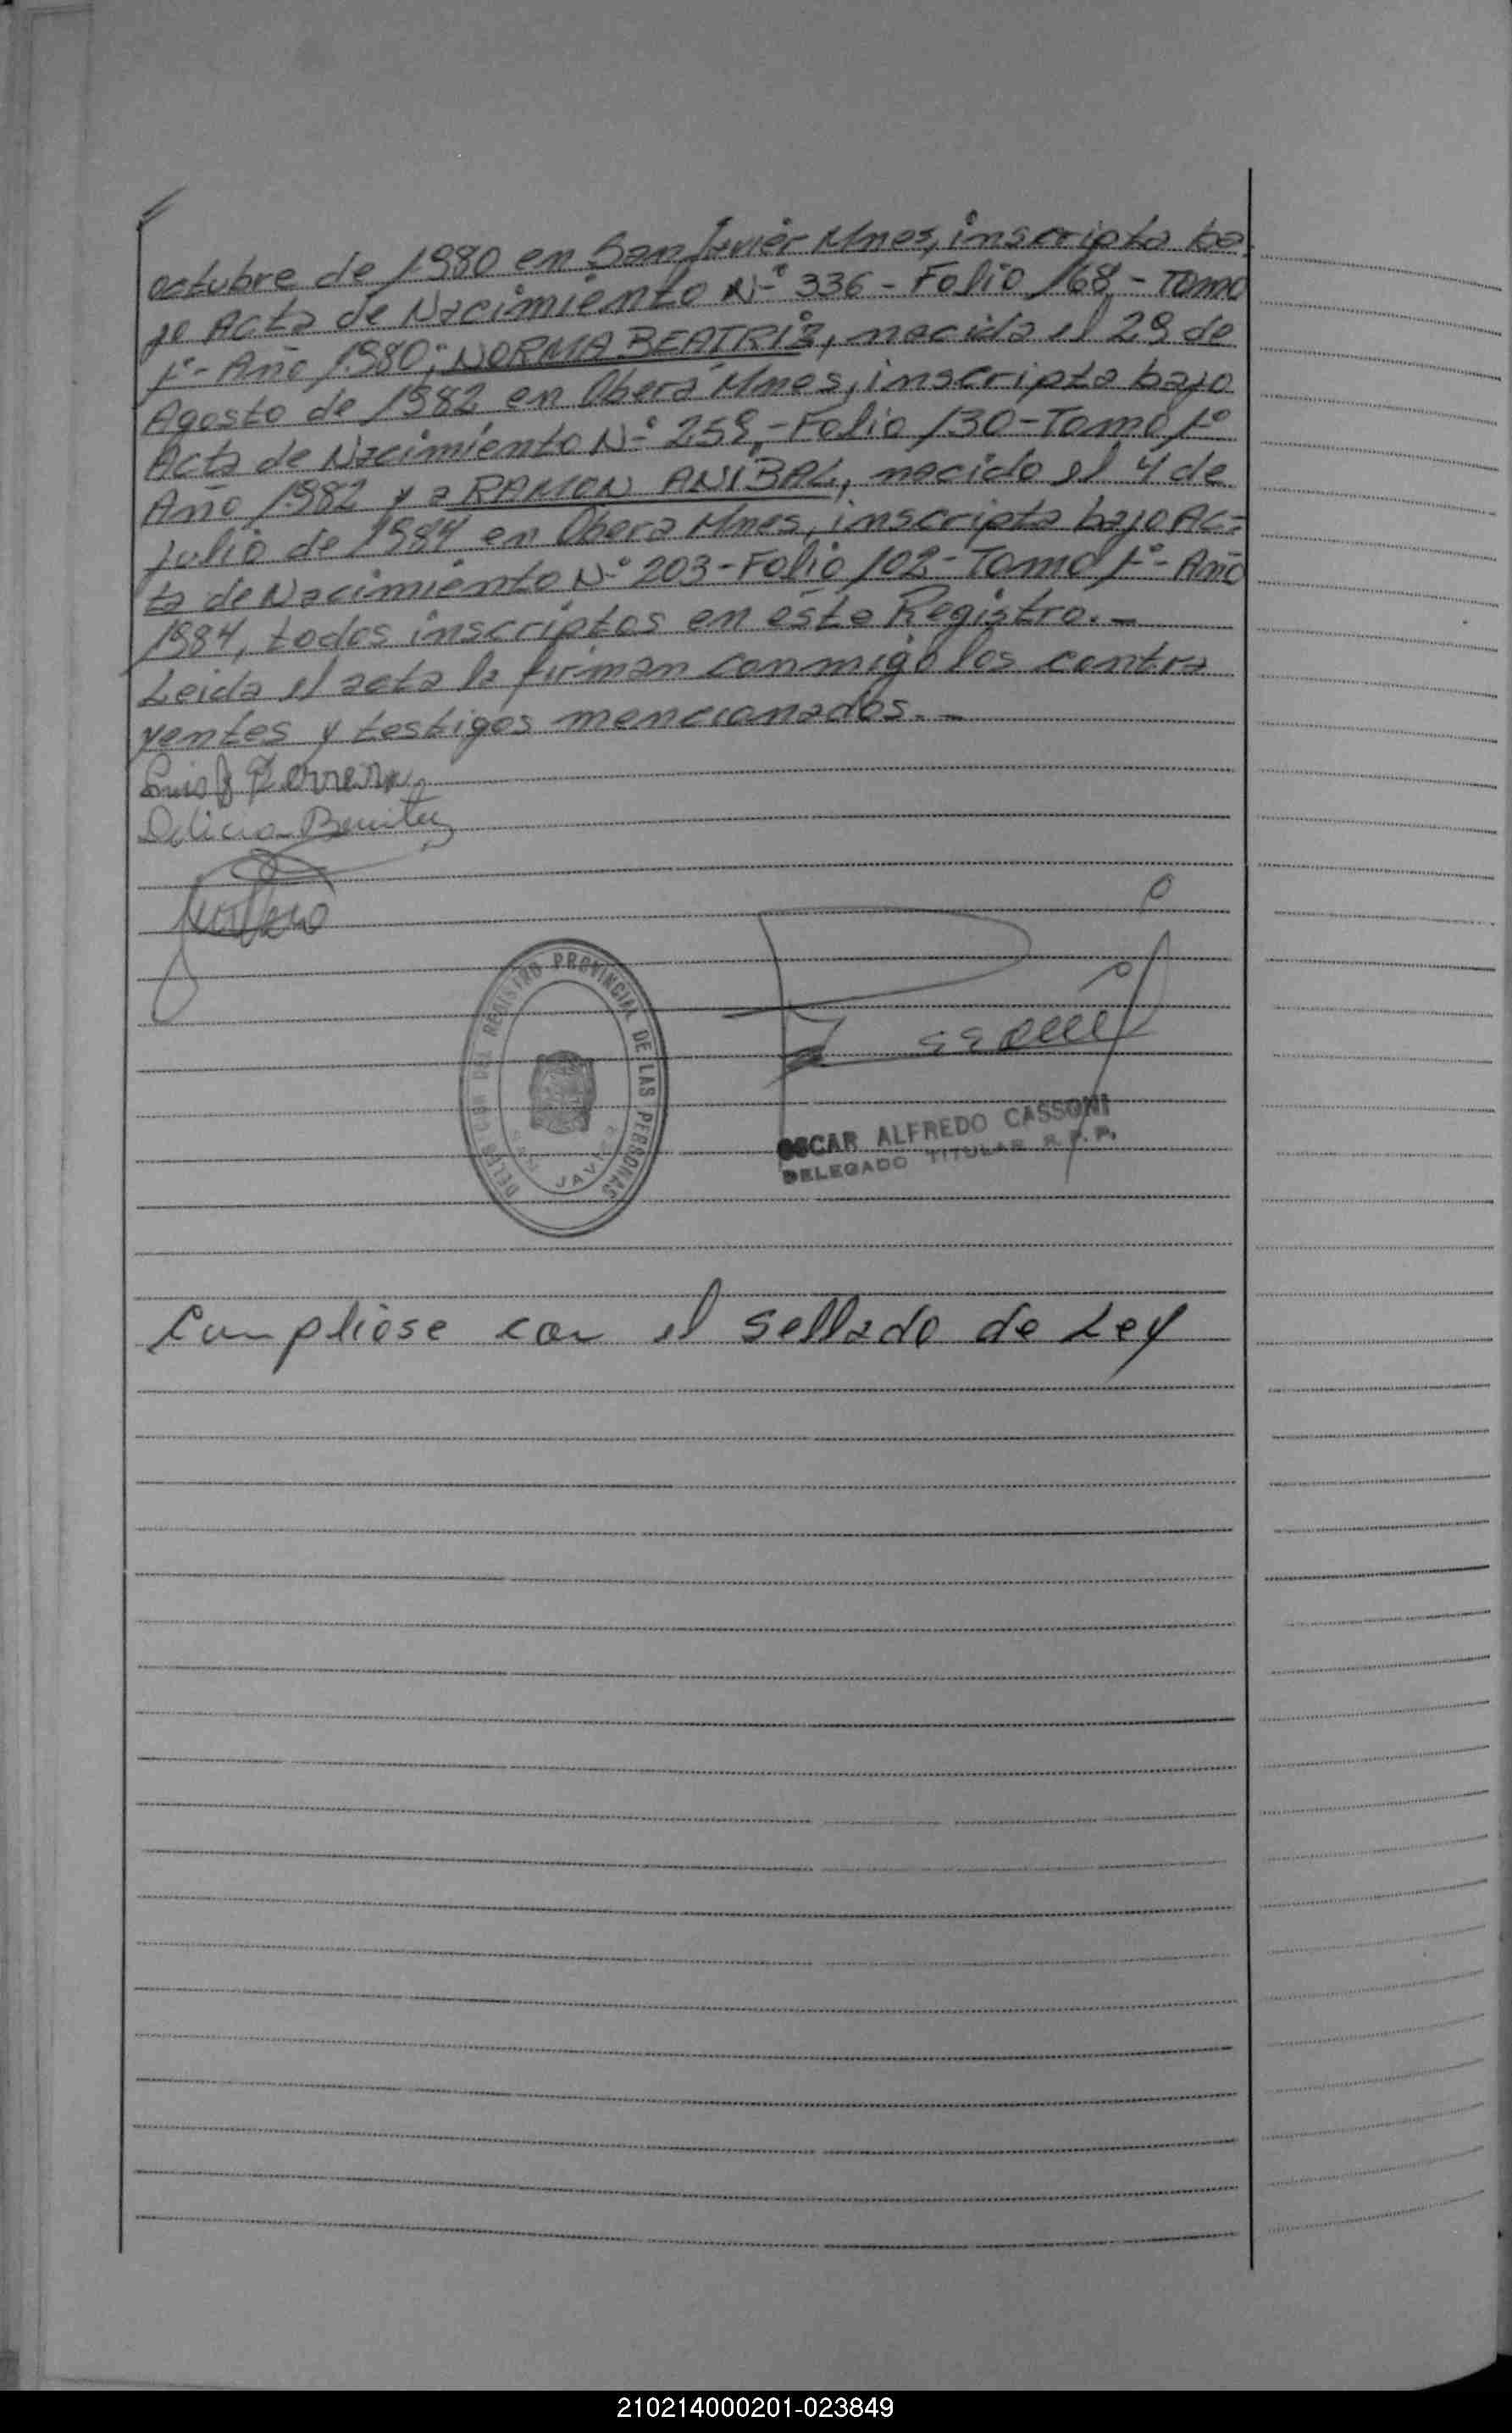 octubre de 1980 en San Javier Mnes, inscripta ba
jo Acta de Nacimiento Nº 336 - Folio 168 - Tomo
1º - Año 1980; NORMA BEATRIZ, nacida el 29 de
Agosto de 1982 en Oberá Mnes, inscripta bajo
Acta de Nacimiento Nº 259 - Folio 130 - Tomo 1º
Año 1982 y a RAMON ANIBAL, nacido el 4 de
Julio de 1984 en Obera Mnes, inscripto bajo Ac=
ta de Nacimiento Nº 203 - Folio 102 - Tomo 1º - Año
1984, todos inscriptos en éste Registro. -
Leida el acta la firman conmigo los contra
yentes y testigos mencionados. -
Luis
Delicia Benitez
DELEGACION DEL REGISTRO PROVINCIAL DE LAS PERSONAS
SAN JAVIER
OSCAR ALFREDO CASSONI
DELEGADO TITULAR R. P. P.
Cumpliose con el sellado de Ley
210214000201-023849